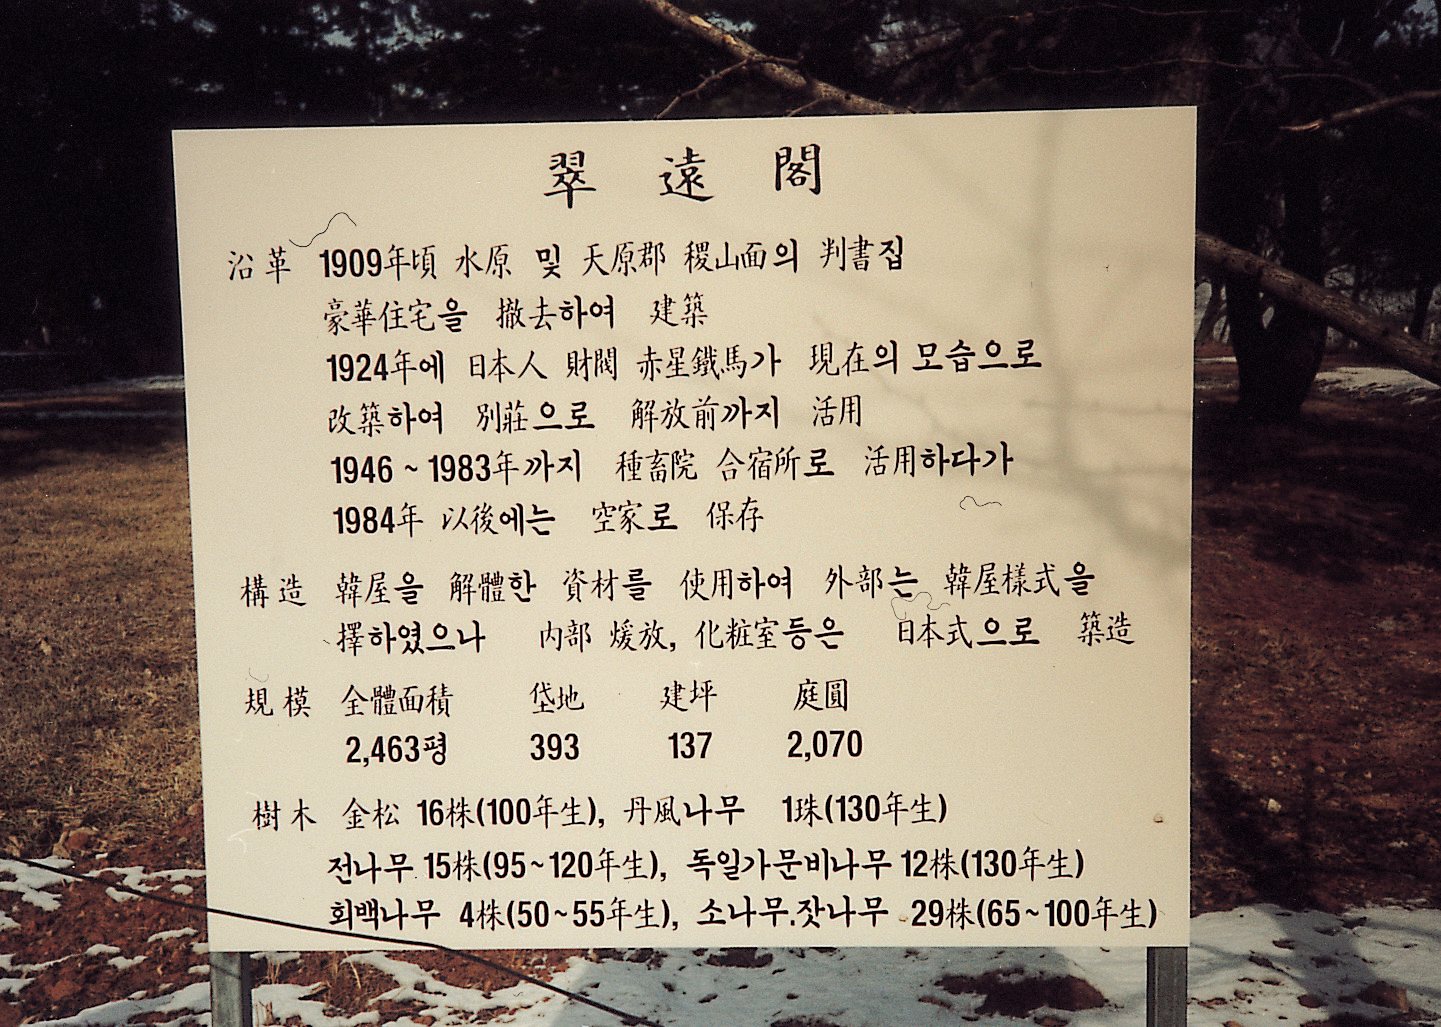 翠遠閣
沿革 1909年頃 水原 및 天原郡 稷山面의 判書집
豪華住宅을 撤去하여 建築
1924年에 日本人 財閥 赤星鐵馬가 現在의 모습으로
改築하여 別莊으로 解放前까지 活用
1946 ~ 1983年까지 種畜院 合宿所로 活用하다가
1984年 以後에는 空家로 保存
構造 韓屋을 解體한 資材를 使用하여 外部는 韓屋樣式을
擇하였으나 內部 煖放, 化粧室등은 日本式으로 築造
規模 全體面積 垈地 建坪 庭圓
2,463평 393 137 2,070
樹木 金松 16株(100年生), 丹風나무 1珠(130年生)
전나무 15株(95~120年生), 독일가문비나무 12株(130年生)
회백나무 4株(50~55年生), 소나무.잣나무 29株(65~100年生)